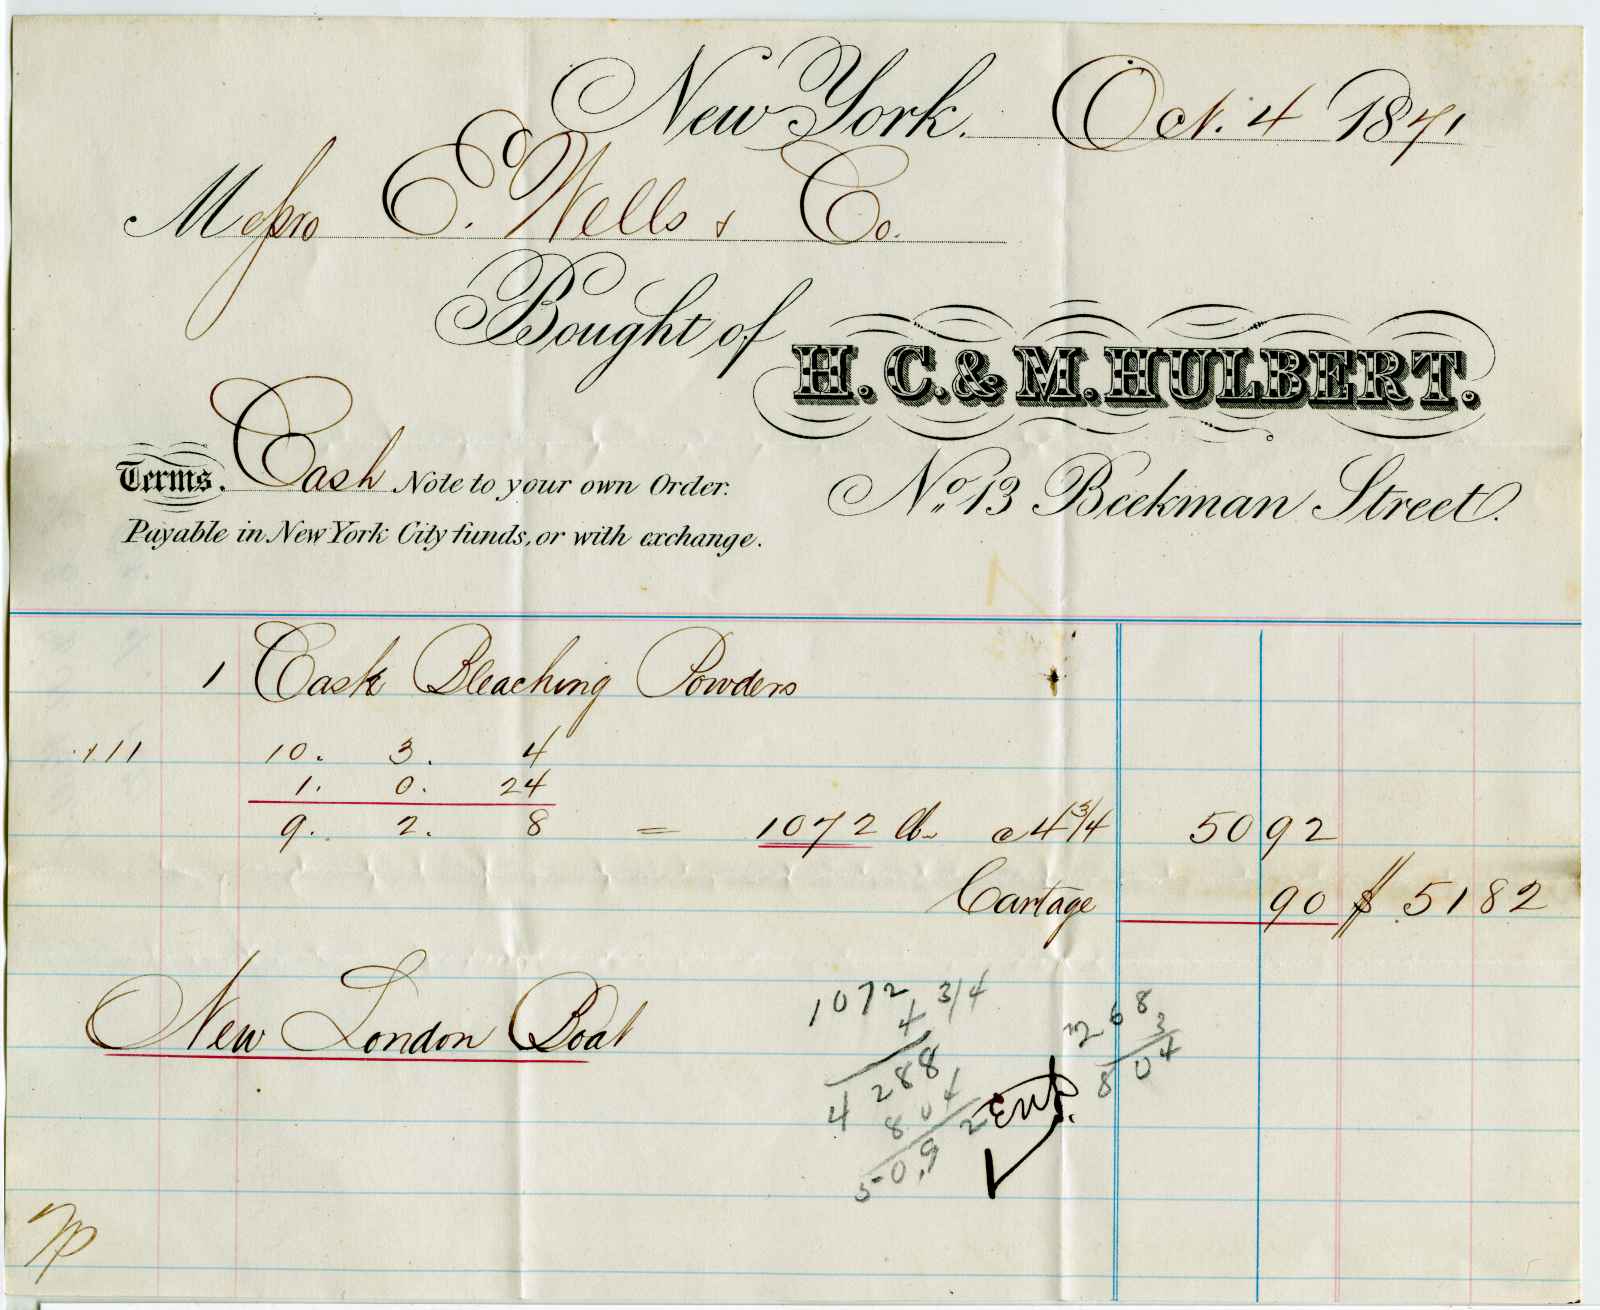 New York. Oct. 4 1871
Messrs E. Wells & Co.
Bought of H. C. & M. HULBERT.
Terms. Cash Note to your own Order.
No. 13 Beekman Street.
Payable in New York City funds, or with exchange.
1 Cask Bleaching Powders
111 10. 3. 4
1. 0. 24
9. 2. 8 = 1072 lb @ 4 3/4 50 92
Cartage 90 $ 51 82
New London Boat
1072
4 3/4
4 288
804
50,92
268
3
804